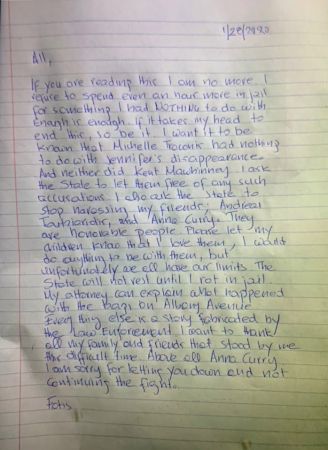 1/28/2020
All,
If you are reading this I am no more. I
refuse to spend even an hour more in jail
for something I had NOTHING to do with
Enough is enough. If it takes my head to
end this, so be it. I want it to be
known that Michelle Troconis had nothing
to do with Jennifer's disappearance.
And neither did Kent Mawhinney. I ask
the State to let them free of any such
accusations. I also ask the State to
stop harassing my friends; Andreas
Toutziaridis and Anna Curry. They
are honorable people. Please let my
children know that I love them, I would
do anything to be with them, but
unfortunately we all have our limits. The
State will not rest until I rot in jail.
My attorney can explain what happened
with the bags on Albany Avenue.
Everything else is a story fabricated by
the Law Enforcement. I want to thank
all my family and friends that stood by me
this difficult time. Above all Anna Curry
I am sorry for letting you down and not
continuing the fight.
Fotis